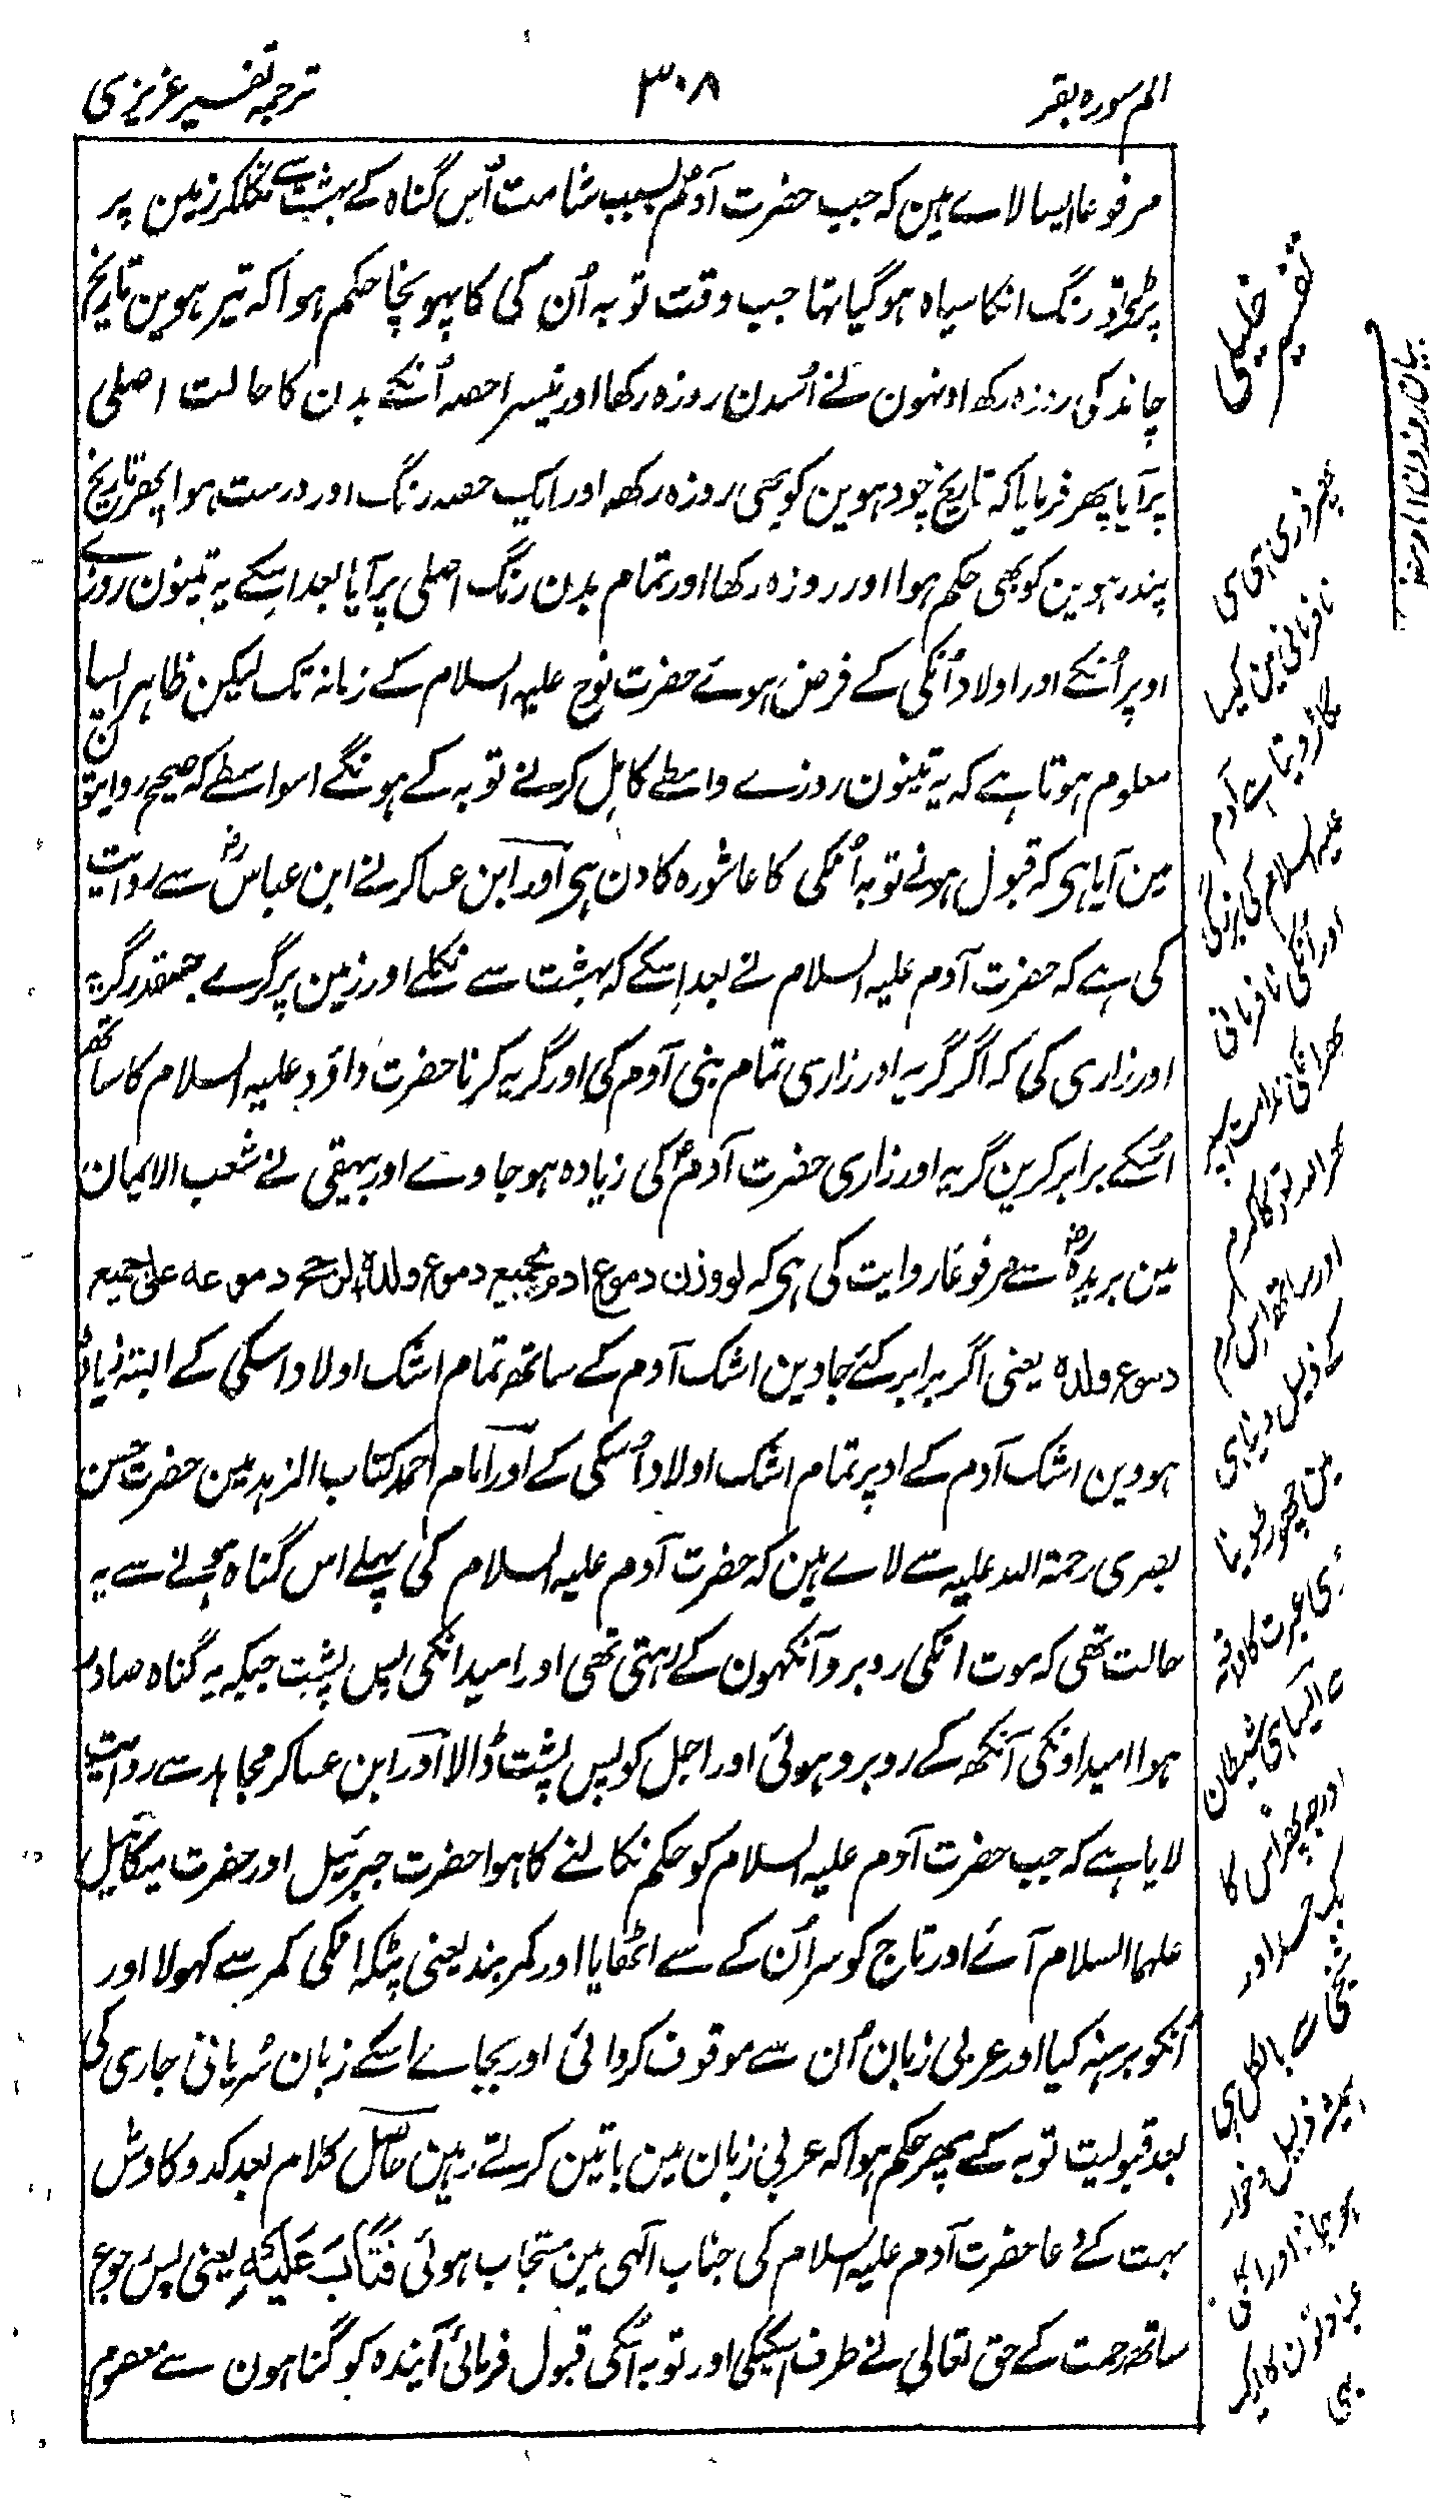 الم سورہ بقر
۳۰۸
ترجمہ تفسیر عزیزی
مرفوعا ایسا لاے ہین کہ جب حضرت آدمؑ بسبب شامت اُس گناہ کے بہشت سے نکلکر زمین پر
پڑے تو رنگ انکا سیاہ ہو گیا تہا جب وقت توبہ اُن کی کا پہونچا حکم ہوا کہ تیرہوین تاریخ
چاند کی روزہ رکھ اونہون نے اُسدن روزہ رکھا اور تیسرا حصہ اُنکے بدن کا حالت اصلی
پر آیا پھر فرمایا کہ تاریخ چودہوین کو بھی روزہ رکھہ اور ایک حصہ رنگ اور درست ہوا پھر تاریخ
پندرہوین کو بھی حکم ہوا اور روزہ رکھا اور تمام بدن رنگ اصلی پر آیا بعد اسکے یہ تینون روزے
اوپر اُنکے اور اولاد اُنکی کے فرض ہوے حضرت نوح علیہ السلام کے زمانہ تک لیکن ظاہر ایسا
معلوم ہوتا ہے کہ یہ تینون روزے واسطے کامل کرنے توبہ کے ہونگے اسواسطے کہ صحیح روایتون
مین آیا ہی کہ قبول ہونے توبہ اُنکی کا عاشورہ کا دن ہی اور ابن عساکر نے ابن عباسؓ سے روایت
کی ہے کہ حضرت آدم علیہ السلام نے بعد اسکے کہ بہشت سے نکلے اور زمین پر گرے جسقدر گریہ
اور زاری کی کہ اگر گریہ اور زاری تمام بنی آدم کی اور گریہ کرنا حضرت داؤد علیہ السلام کا ساتھ
اُسکے برابر کرین گریہ اور زاری حضرت آدمؑ کی زیادہ ہو جاوے اور بیہقی نے شعب الایمان
مین بریدہؓ سے مرفوعاً روایت کی ہی کہ لو وزن دموع ادم بجمیع دموع ولدہ لرجح دموعہ علی جمیع
دموع ولدہ یعنی اگر برابر کئے جاوین اشک آدم کے ساتھ تمام اشک اولاد اسکی کے البتہ زیادہ
ہووین اشک آدم کے اوپر تمام اشک اولاد اُسکی کے اور امام احمد کتاب الزہد مین حضرت حسن
بصری رحمۃ اللہ علیہ سے لاے ہین کہ حضرت آدم علیہ السلام کی پہلے اس گناہ ہونے سے یہ
حالت تھی کہ موت انکی روبرو آنکہون کے رہتی تھی اور امید انکی پس پشت جبکہ یہ گناہ صادر
ہوا امید اونکی آنکھ کے روبرو ہوئی اور اجل کو پس پشت ڈالا اور ابن عساکر مجاہد سے روایت
لایا ہے کہ جب حضرت آدم علیہ السلام کو حکم نکالنے کا ہوا حضرت جبرئیل اور حضرت میکائیل
علیہما السلام آئے اور تاج کو سر اُن کے سے اٹھایا اور کمر بند یعنی پٹکہ انکی کمر سے کہولا اور
اُنکو برہنہ کیا اور عربی زبان اُن سے موقوف کروائی اور بجاے اسکے زبان سُریانی جاری کی
بعد قبولیت توبہ کے پھر حکم ہوا کہ عربی زبان مین باتین کرتے رہین حاصل کلام بعد کد و کاوش
بہت کے دعا حضرت آدم علیہ السلام کی جناب الٰہی مین مستجاب ہوئی فَتَابَ عَلَیْهِ یعنی پس رجوع
ساتھ رحمت کے حق تعالی نے طرف اسکی اور توبہ اُنکی قبول فرمائی آیندہ کو گناہون سے معصوم
نافرمانی مین کیسا
آدم
علیہ السلام کی بزرگی
اور اُنکی نافرمانی
اور ساتھ اس کرم
مین چھوڑ دینا
شیطان
حسد اور